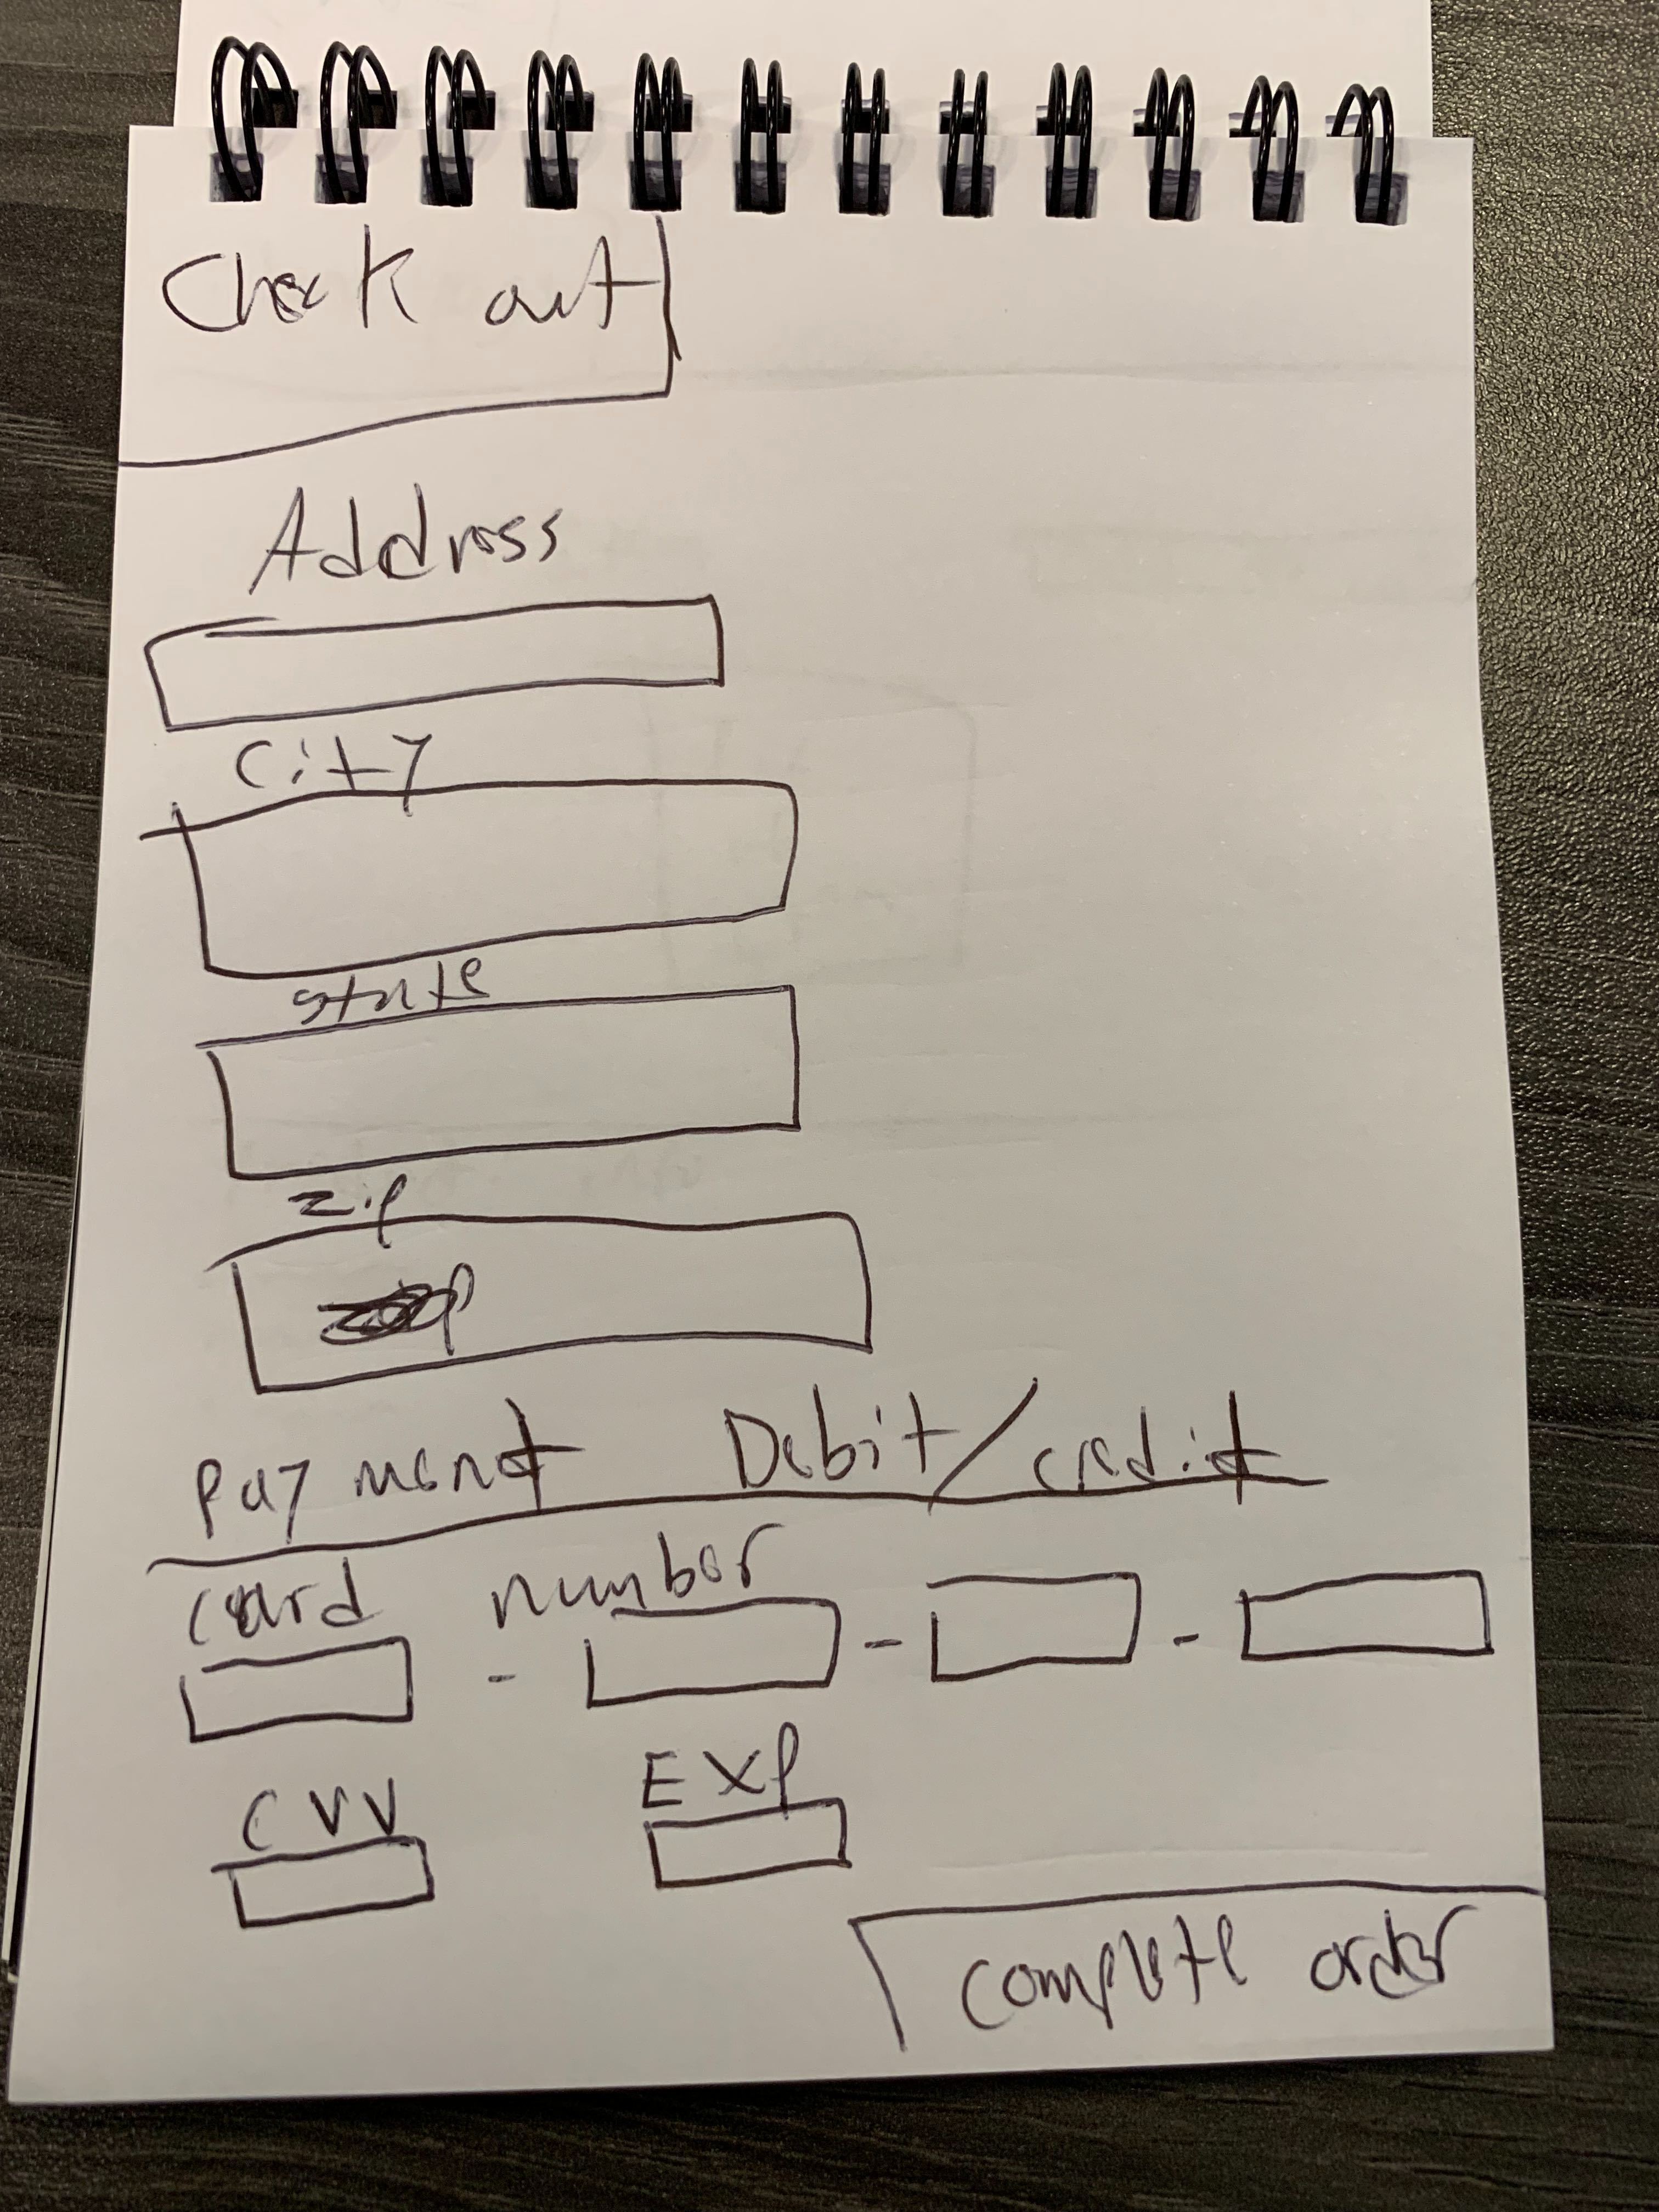 Check out
Address
City
state
zip
Payment Debit/credit
card number
- - -
CVV Exp
complete order